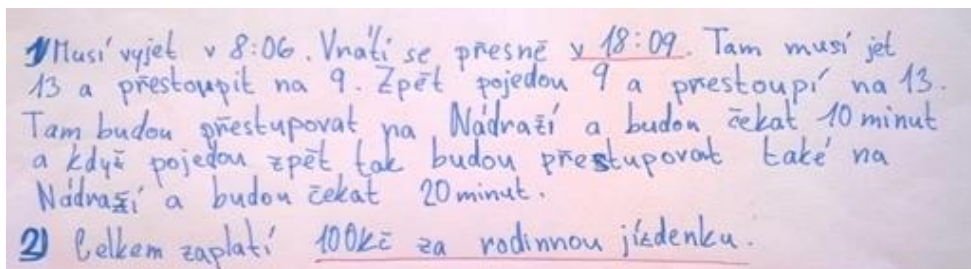 1) Musí vyjet v 8:06. Vrátí se přesně v 18:09. Tam musí jet
13 a přestoupit na 9. Zpět pojedou 9 a prestoupí na 13.
Tam budou přestupovat na Nádraží a budou čekat 10 minut
a když pojedou zpět tak budou přestupovat také na
Nádraží a budou čekat 20 minut.
2) Celkem zaplatí 100Kč za rodinnou jízdenku.